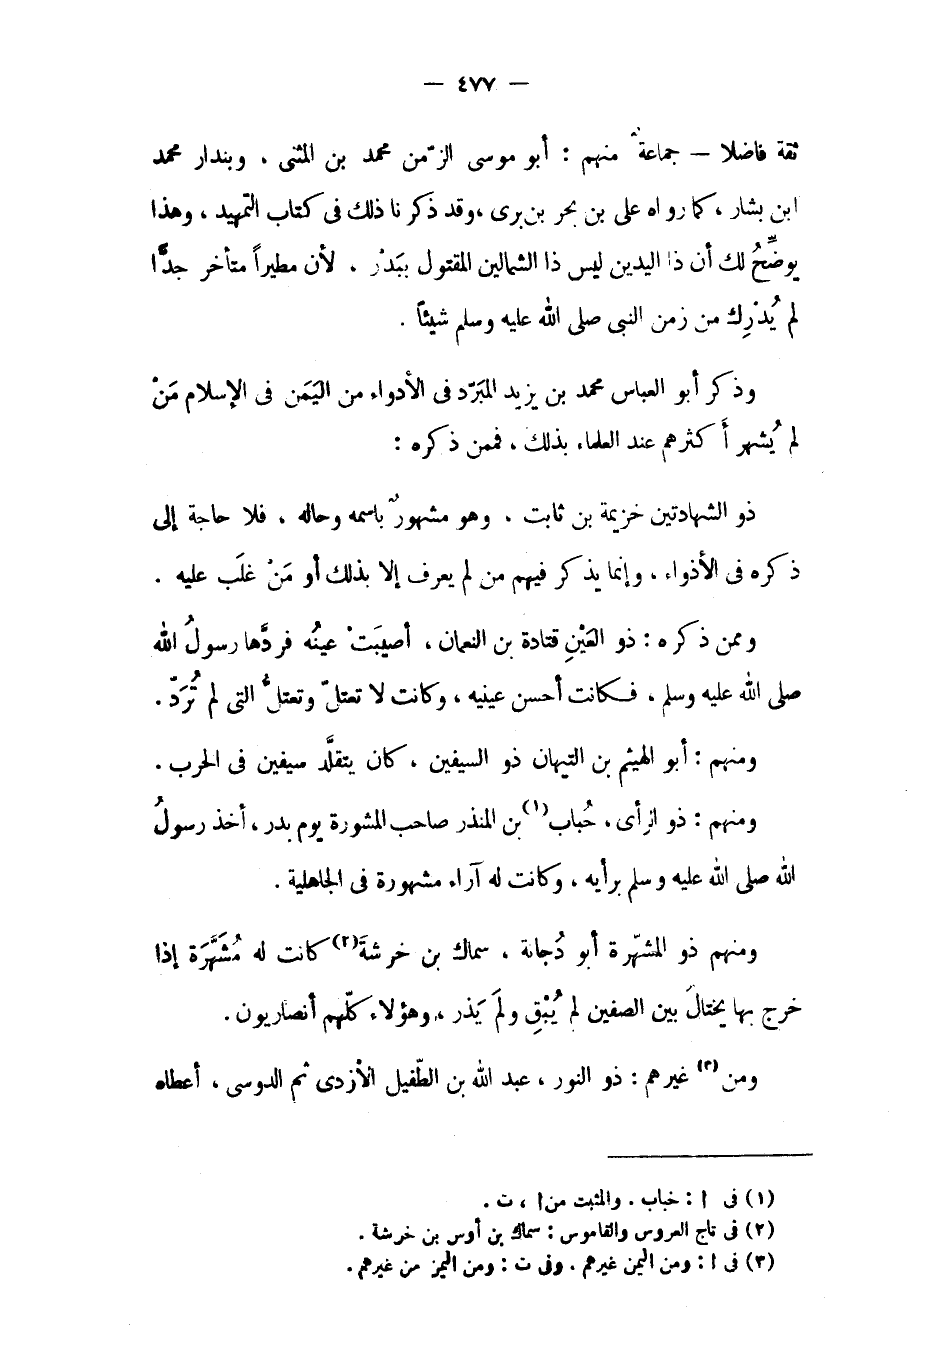 — ٤٧٧ —
ثقة فاضلا — جماعةٌ منهم : أبو موسى الزّمن محمد بن المثنى ، وبندار محمد
ابن بشار ، كما رواه على بن بحر بن برى ، وقد ذكرنا ذلك فى كتاب التمهيد ، وهذا
يوضِّحُ لك أن ذا اليدين ليس ذا الشمالين المقتول ببَدْر ، لأن مطيراً متأخر جدًّا
لم يُدْرِك من زمن النبى صلى الله عليه وسلم شيئاً .
وذكر أبو العباس محمد بن يزيد المبَرّد فى الأدواء من اليَمَن فى الإسلام مَنْ
لم يُشهر أَكثرهم عند العلماء بذلك ، فممن ذكره :
ذو الشهادتين خزيمة بن ثابت ، وهو مشهورٌ باسمه وحاله ، فلا حاجة إلى
ذكره فى الأذواء ، وإنما يذكر فيهم من لم يعرف إلا بذلك أو مَنْ غلَب عليه .
وممن ذكره : ذو العَيْنِ قتادة بن النعمان ، أصيبَتْ عينُه فردَّها رسولُ الله
صلى الله عليه وسلم ، فكانت أحسن عينيه ، وكانت لا تعتلّ وتعتلُّ التى لم تُرَدّ .
ومنهم : أبو الهيثم بن التيهان ذو السيفين ، كان يتقلَّد سيفين فى الحرب .
ومنهم : ذو الرأى ، حُباب (١) بن المنذر صاحب المشورة يوم بدر ، أخذ رسولُ
الله صلى الله عليه وسلم برأيه ، وكانت له آراء مشهورة فى الجاهلية .
ومنهم ذو المشهّرة أبو دُجانة ، سماك بن خرشةَ (٢) كانت له مُشَهَّرَة إذا
خرج بها يختالَ بين الصفين لم يُبْقِ ولَم يَذر ، وهؤلاء كلّهم أنصاريون .
ومن (٣) غيرهم : ذو النور ، عبد الله بن الطّفيل الأزدى ثم الدوسى ، أعطاه
(١) فى ا : خباب . والمثبت من ا ، ت .
(٢) فى تاج العروس والقاموس : سماك بن أوس بن خرشة .
(٣) فى ا : ومن اليمن غيرهم . وفى ت : ومن اليمن من غيرهم .